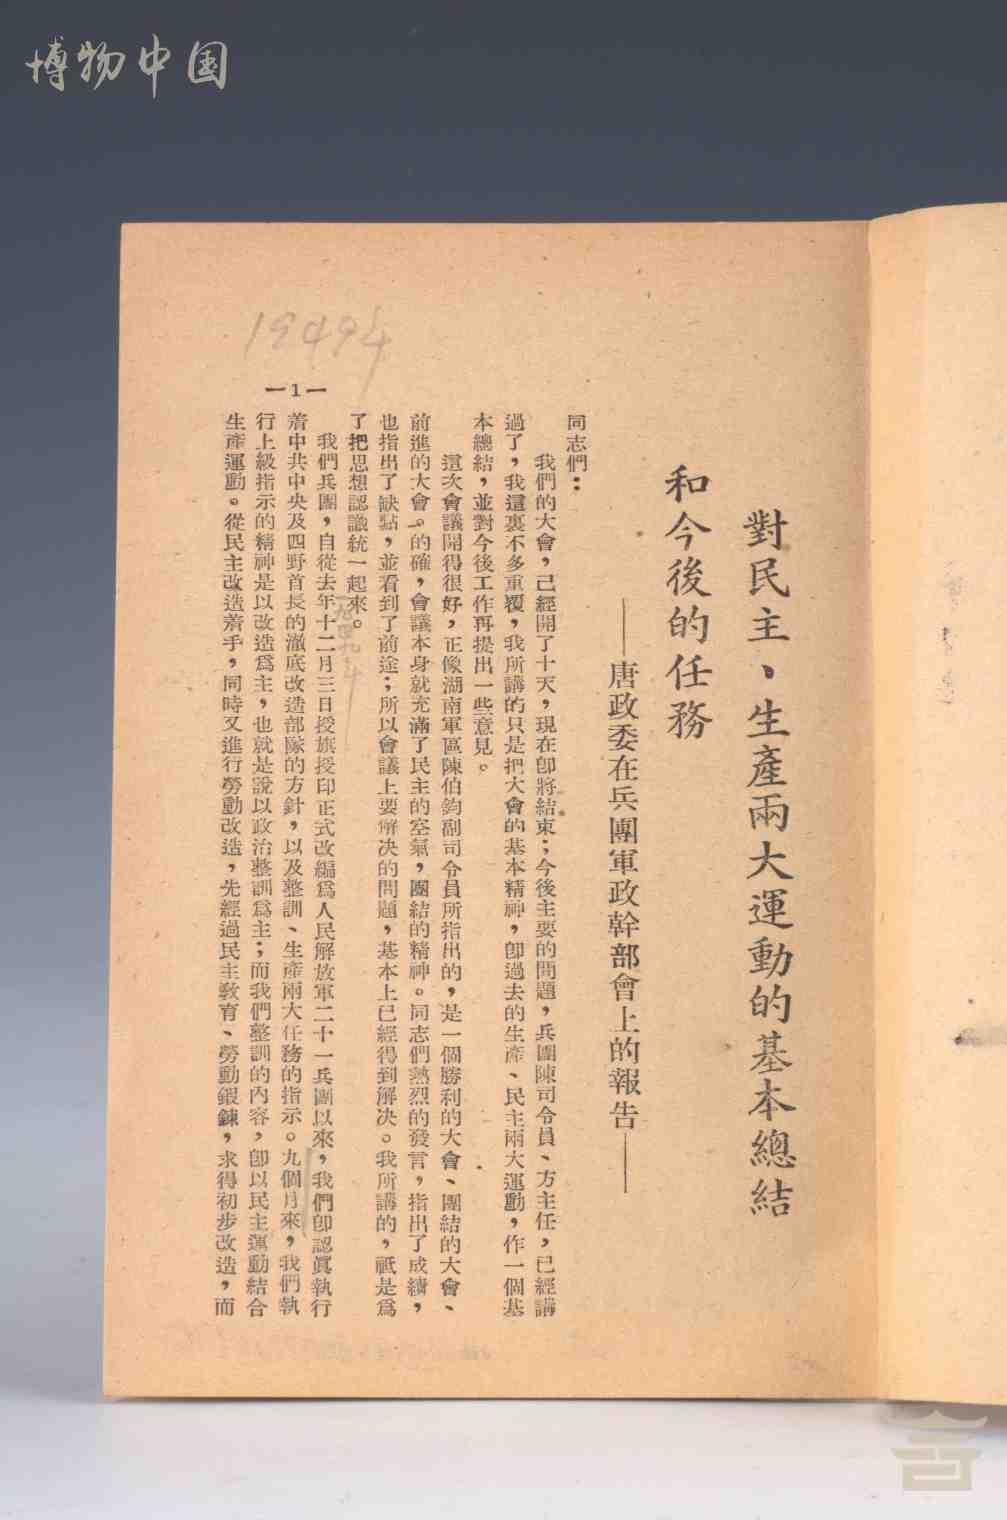 博物中国
對民主、生產兩大運動的基本總結
和今後的任務
——唐政委在兵團軍政幹部會上的報告——
同志們：
我們的大會，已經開了十天，現在卽將結束；今後主要的問題，兵團陳司令員、方主任，已經講
過了，我這裏不多重覆，我所講的只是把大會的基本精神，卽過去的生產、民主兩大運動，作一個基
本總結，並對今後工作再提出一些意見。
這次會議開得很好，正像湖南軍區陳伯鈞副司令員所指出的，是一個勝利的大會、團結的大會、
前進的大會。的確，會議本身就充滿了民主的空氣，團結的精神。同志們熱烈的發言，指出了成績，
也指出了缺點，並看到了前途；所以會議上要解决的問題，基本上已經得到解决。我所講的，祇是爲
了把思想認識統一起來。
一九四九.
我們兵團，自從去年十二月三日授旗授印正式改編爲人民解放軍二十一兵團以來，我們卽認眞執行
着中共中央及四野首長的澈底改造部隊的方針，以及整訓、生產兩大任務的指示。九個月來，我們執
行上級指示的精神是以改造爲主，也就是說以政治整訓爲主；而我們整訓的內容，卽以民主運動結合
生產運動。從民主改造着手，同時又進行勞動改造，先經過民主教育、勞動鍛鍊，求得初步改造，而
—1—
19494